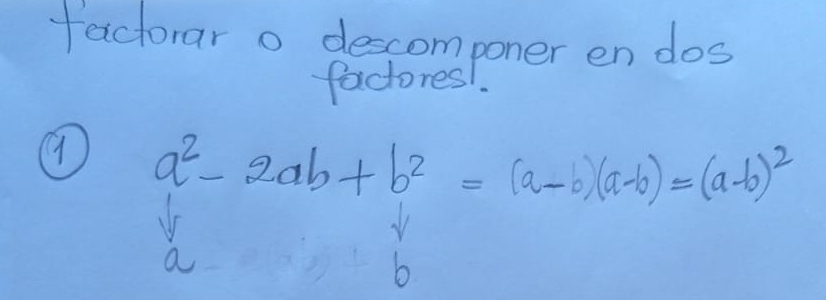 factorar o descomponer en dos
factores.
① a² - 2ab + b² = (a-b)(a-b) = (a-b)²
↓ ↓
a b